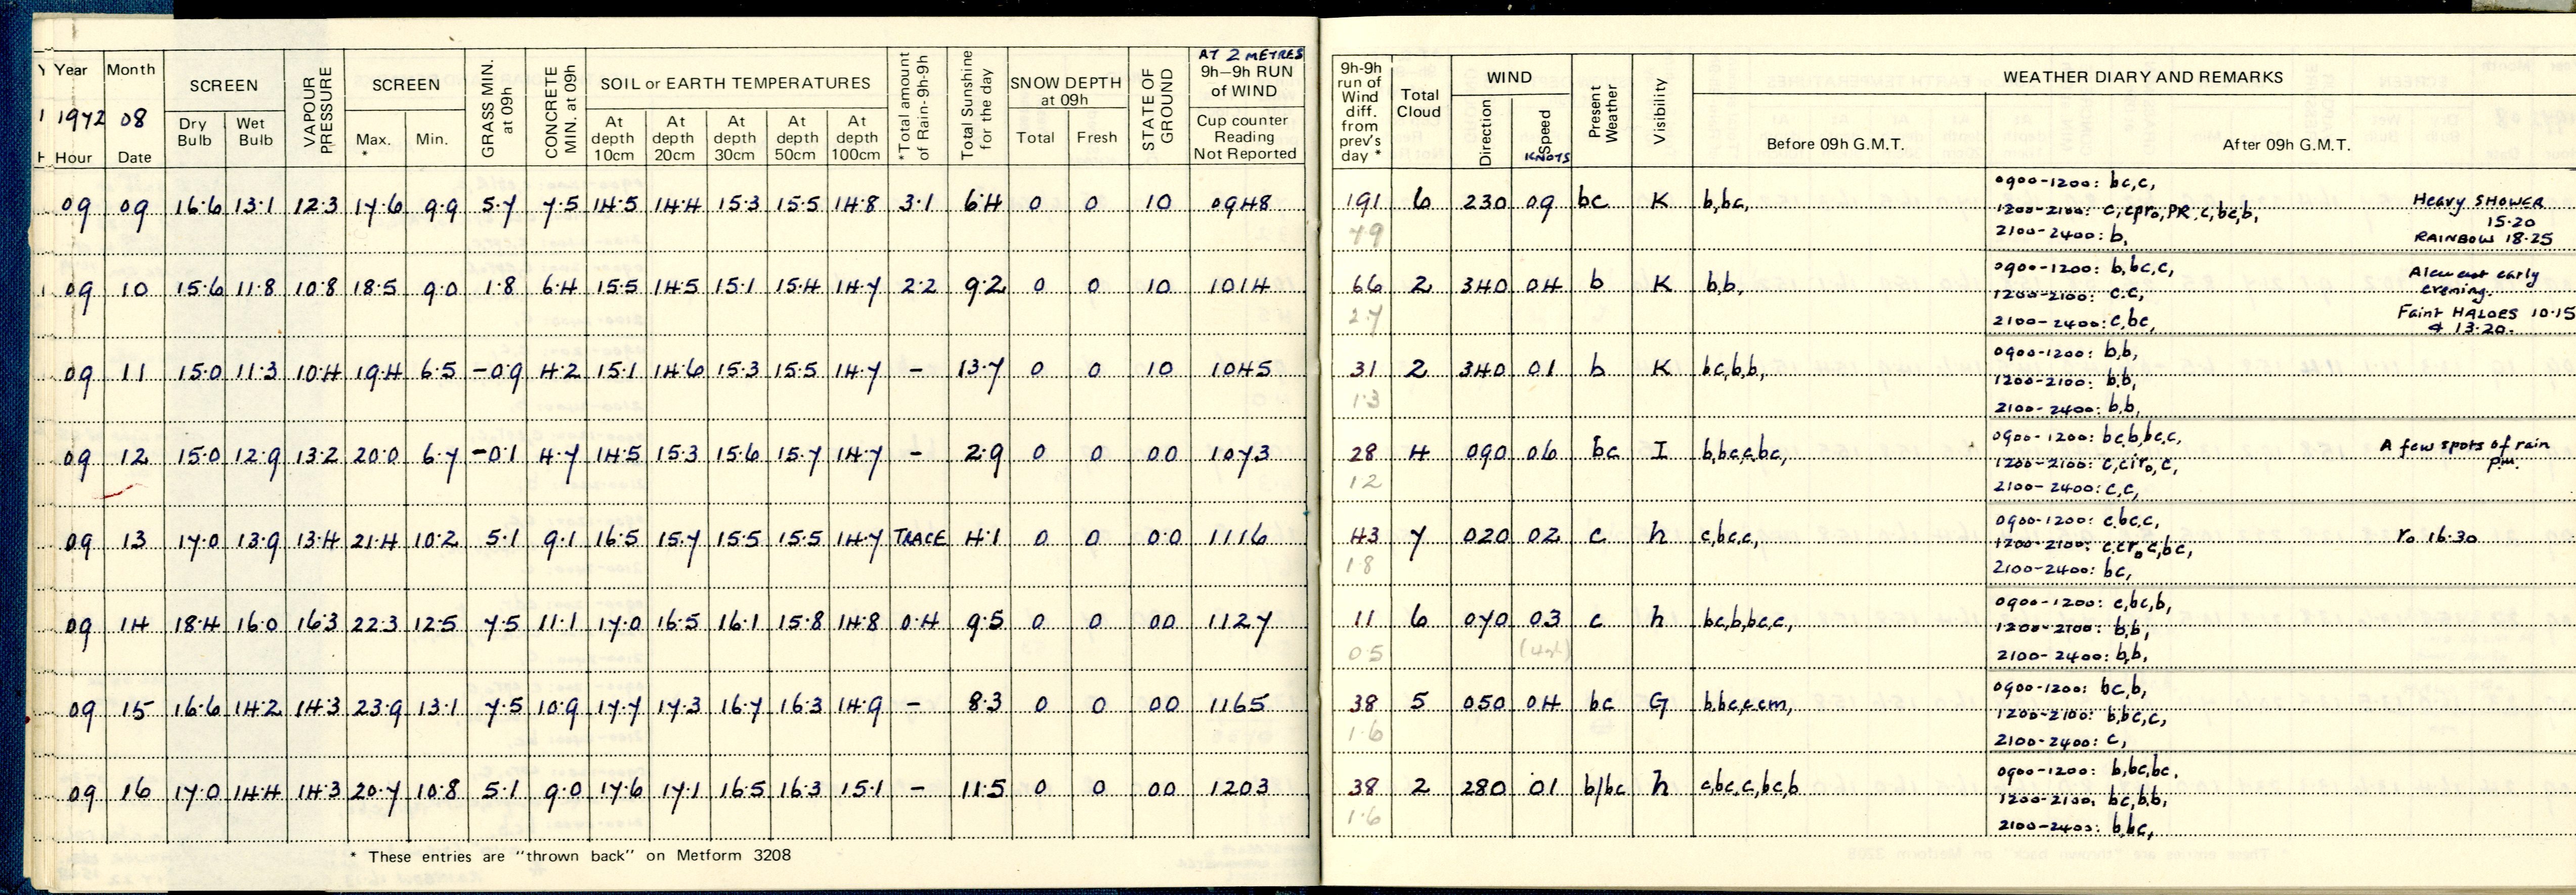 Year Month SCREEN VAPOUR PRESSURE SCREEN GRASS MIN. at 09h CONCRETE MIN. at 09h SOIL or EARTH TEMPERATURES *Total amount of Rain-9h-9h Total Sunshine for the day SNOW DEPTH at 09h STATE OF GROUND AT 2 METRES 9h-9h RUN of WIND
1972 08 Dry Bulb Wet Bulb Max. * Min. At depth 10cm At depth 20cm At depth 30cm At depth 50cm At depth 100cm Total Fresh Cup counter Reading Not Reported
Hour Date
09 09 16.6 13.1 12.3 17.6 9.9 5.7 7.5 14.5 14.4 15.3 15.5 14.8 3.1 6.4 0 0 10 0948
09 10 15.6 11.8 10.8 18.5 9.0 1.8 6.4 15.5 14.5 15.1 15.4 14.7 2.2 9.2 0 0 10 1014
09 11 15.0 11.3 10.4 19.4 6.5 -0.9 4.2 15.1 14.6 15.3 15.5 14.7 - 13.7 0 0 10 1045
09 12 15.0 12.9 13.2 20.0 6.7 -0.1 4.7 14.5 15.3 15.6 15.7 14.7 - 2.9 0 0 00 1073
09 13 17.0 13.9 13.4 21.4 10.2 5.1 9.1 16.5 15.7 15.5 15.5 14.7 TRACE 4.1 0 0 00 1116
09 14 18.4 16.0 16.3 22.3 12.5 7.5 11.1 17.0 16.5 16.1 15.8 14.8 0.4 9.5 0 0 00 1127
09 15 16.6 14.2 14.3 23.9 13.1 7.5 10.9 17.7 17.3 16.7 16.3 14.9 - 8.3 0 0 00 1165
09 16 17.0 14.4 14.3 20.7 10.8 5.1 9.0 17.6 17.1 16.5 16.3 15.1 - 11.5 0 0 00 1203
* These entries are "thrown back" on Metform 3208
9h-9h run of Wind diff. from prev's day * Total Cloud WIND Present Weather Visibility WEATHER DIARY AND REMARKS
Direction Speed KNOTS Before 09h G.M.T. After 09h G.M.T.
0900-1200: bc,c,
191 6 230 09 bc K b,bc, 1200-2100: c,cpr₀,PR,c,bc,b, Heavy SHOWER 15.20
7.9 2100-2400: b, RAINBOW 18.25
0900-1200: b,bc,c,
66 2 340 04 b K b,b, 1200-2100: c.c, early evening.
2.7 2100-2400: c,bc, Faint HALOES 10.15 & 13.20.
0900-1200: b,b,
31 2 340 01 b K bc,b,b, 1200-2100: b,b,
1.3 2100-2400: b,b,
0900-1200: bc,b,bc,c,
28 4 090 06 bc I b,bc,c,bc, 1200-2100: c,cir₀,c, A few spots of rain pm.
1.2 2100-2400: c,c,
0900-1200: c,bc,c,
43 7 020 02 c h c,bc,c, 1200-2100: c.cr₀c,bc, r₀ 16.30
1.8 2100-2400: bc,
0900-1200: c,bc,b,
11 6 070 03 c h bc,b,bc,c, 1200-2100: b,b,
0.5 2100-2400: b,b,
0900-1200: bc,b,
38 5 050 04 bc G b,bc,c,cm, 1200-2100: b,bc,c,
1.6 2100-2400: c,
0900-1200: b,bc,bc,
38 2 280 01 b/bc h c,bc,c,bc,b 1200-2100: bc,b,b,
1.6 2100-2400: b,bc,